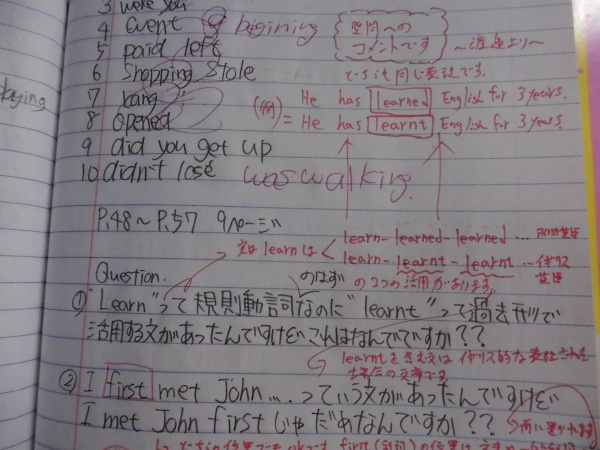 3 were you
4 event begining
5 paid left
6 shopping stole
7 rang
8 opened
9 did you get up
10 didn't lose was walking.
playing
質問への
コメントです
〜渡邉より〜
どちらも同じ表現である。
(例) He has learned English for 3 years.
= He has learnt English for 3 years.
P.48〜P.57 9ページ
実は learn は
learn - learned - learned ...
learn - learnt - learnt ... イギリス
英語
の2つの活用があります。
Question.
のはず
① "Learn"って規則動詞なのに"learnt"って過去形で
活用する文があったんですけどこれはなんでですか??
learntを
② I first met John....っていう文があったんですけど
I met John firstじゃだめなんですか??